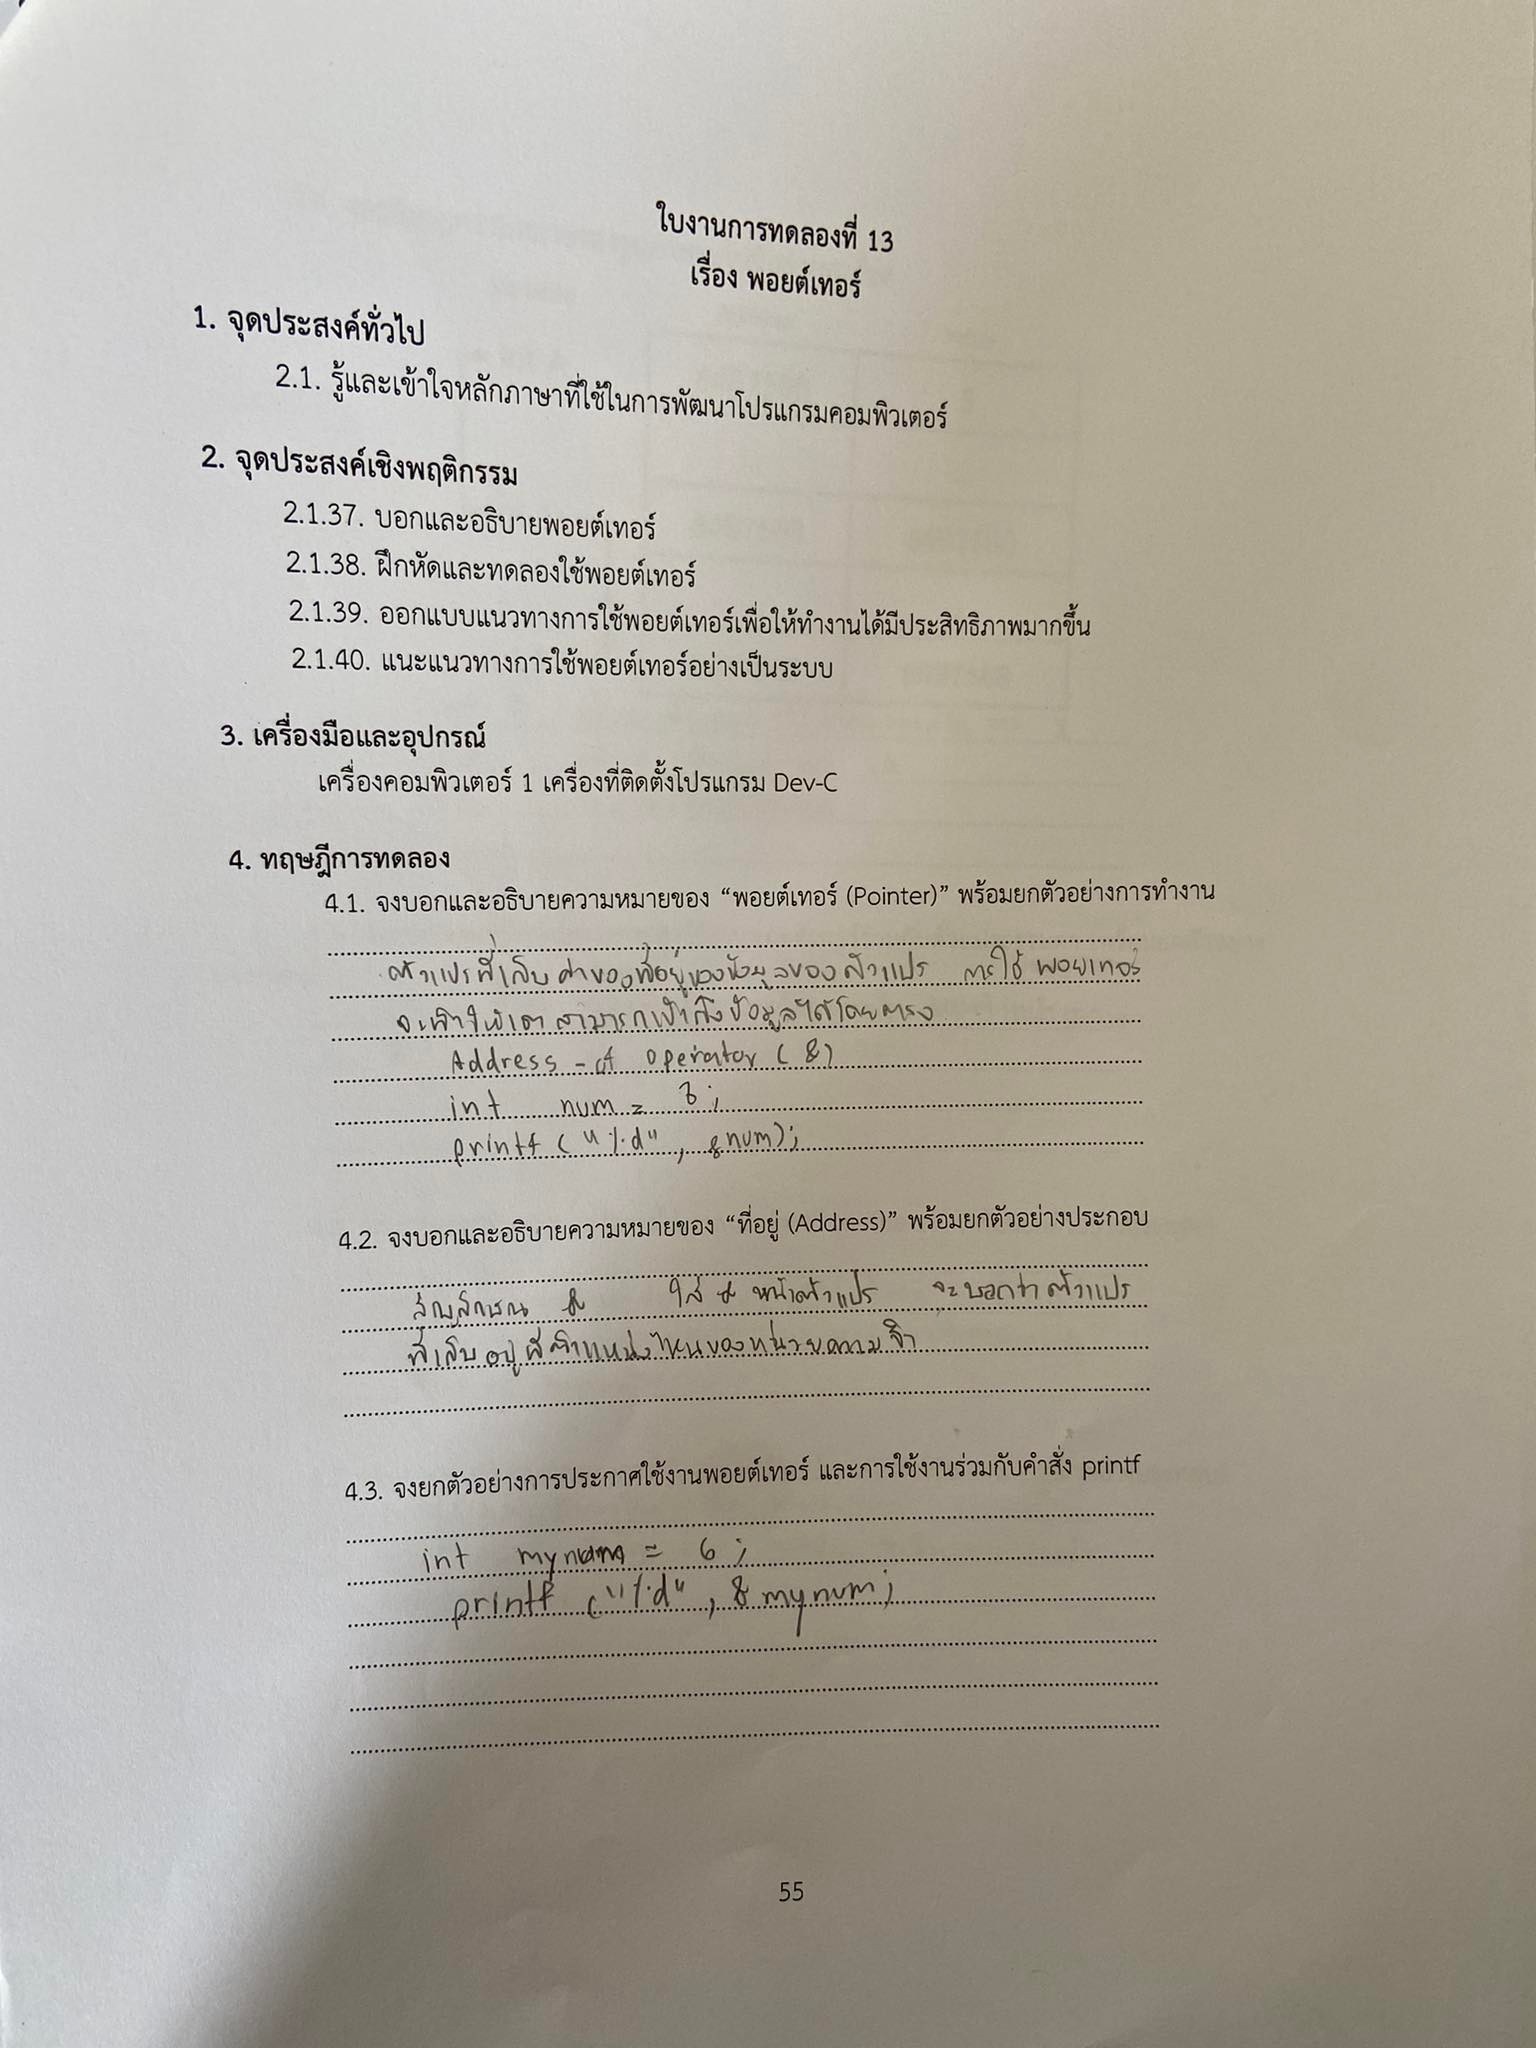 ใบงานการทดลองที่ 13
เรื่อง พอยต์เทอร์
1. จุดประสงค์ทั่วไป
2.1. รู้และเข้าใจหลักภาษาที่ใช้ในการพัฒนาโปรแกรมคอมพิวเตอร์
2. จุดประสงค์เชิงพฤติกรรม
2.1.37. บอกและอธิบายพอยต์เทอร์
2.1.38. ฝึกหัดและทดลองใช้พอยต์เทอร์
2.1.39. ออกแบบแนวทางการใช้พอยต์เทอร์เพื่อให้ทำงานได้มีประสิทธิภาพมากขึ้น
2.1.40. แนะแนวทางการใช้พอยต์เทอร์อย่างเป็นระบบ
3. เครื่องมือและอุปกรณ์
เครื่องคอมพิวเตอร์ 1 เครื่องที่ติดตั้งโปรแกรม Dev-C
4. ทฤษฎีการทดลอง
4.1. จงบอกและอธิบายความหมายของ “พอยต์เทอร์ (Pointer)” พร้อมยกตัวอย่างการทำงาน
ตัวแปรที่เก็บค่าของที่อยู่ของข้อมูลของตัวแปร การใช้ พอยเทอร์
จะทำให้เราสามารถเข้าถึงข้อมูลได้โดยตรง
Address - of operator ( & )
int num = 8 ;
printf ( "%d" , &num) ;
4.2. จงบอกและอธิบายความหมายของ “ที่อยู่ (Address)” พร้อมยกตัวอย่างประกอบ
& ใส่ & หน้าตัวแปร จะบอกว่า ตัวแปร
ที่เก็บอยู่ที่ตำแหน่งไหนของหน่วยความจำ
4.3. จงยกตัวอย่างการประกาศใช้งานพอยต์เทอร์ และการใช้งานร่วมกับคำสั่ง printf
int mynum = 6 ;
printf ( "%d" , & mynum ;
55